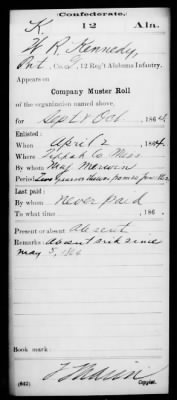 Confederate.
K 12 Ala.
W. R. Kennedy,
Co. G, 12 Reg't Alabama Infantry.
Appears on
Company Muster Roll
of the organization named above,
for Sept & Oct, 1864.
Enlisted:
When April 2, 1864.
Where Tippah Co. Miss
By whom Maj. Merwin
Period
Last paid:
By whom never paid
To what time , 186 .
Present or absent absent
Remarks: absent sick since
May 5, 1864
Book mark:
(642) Copyist.